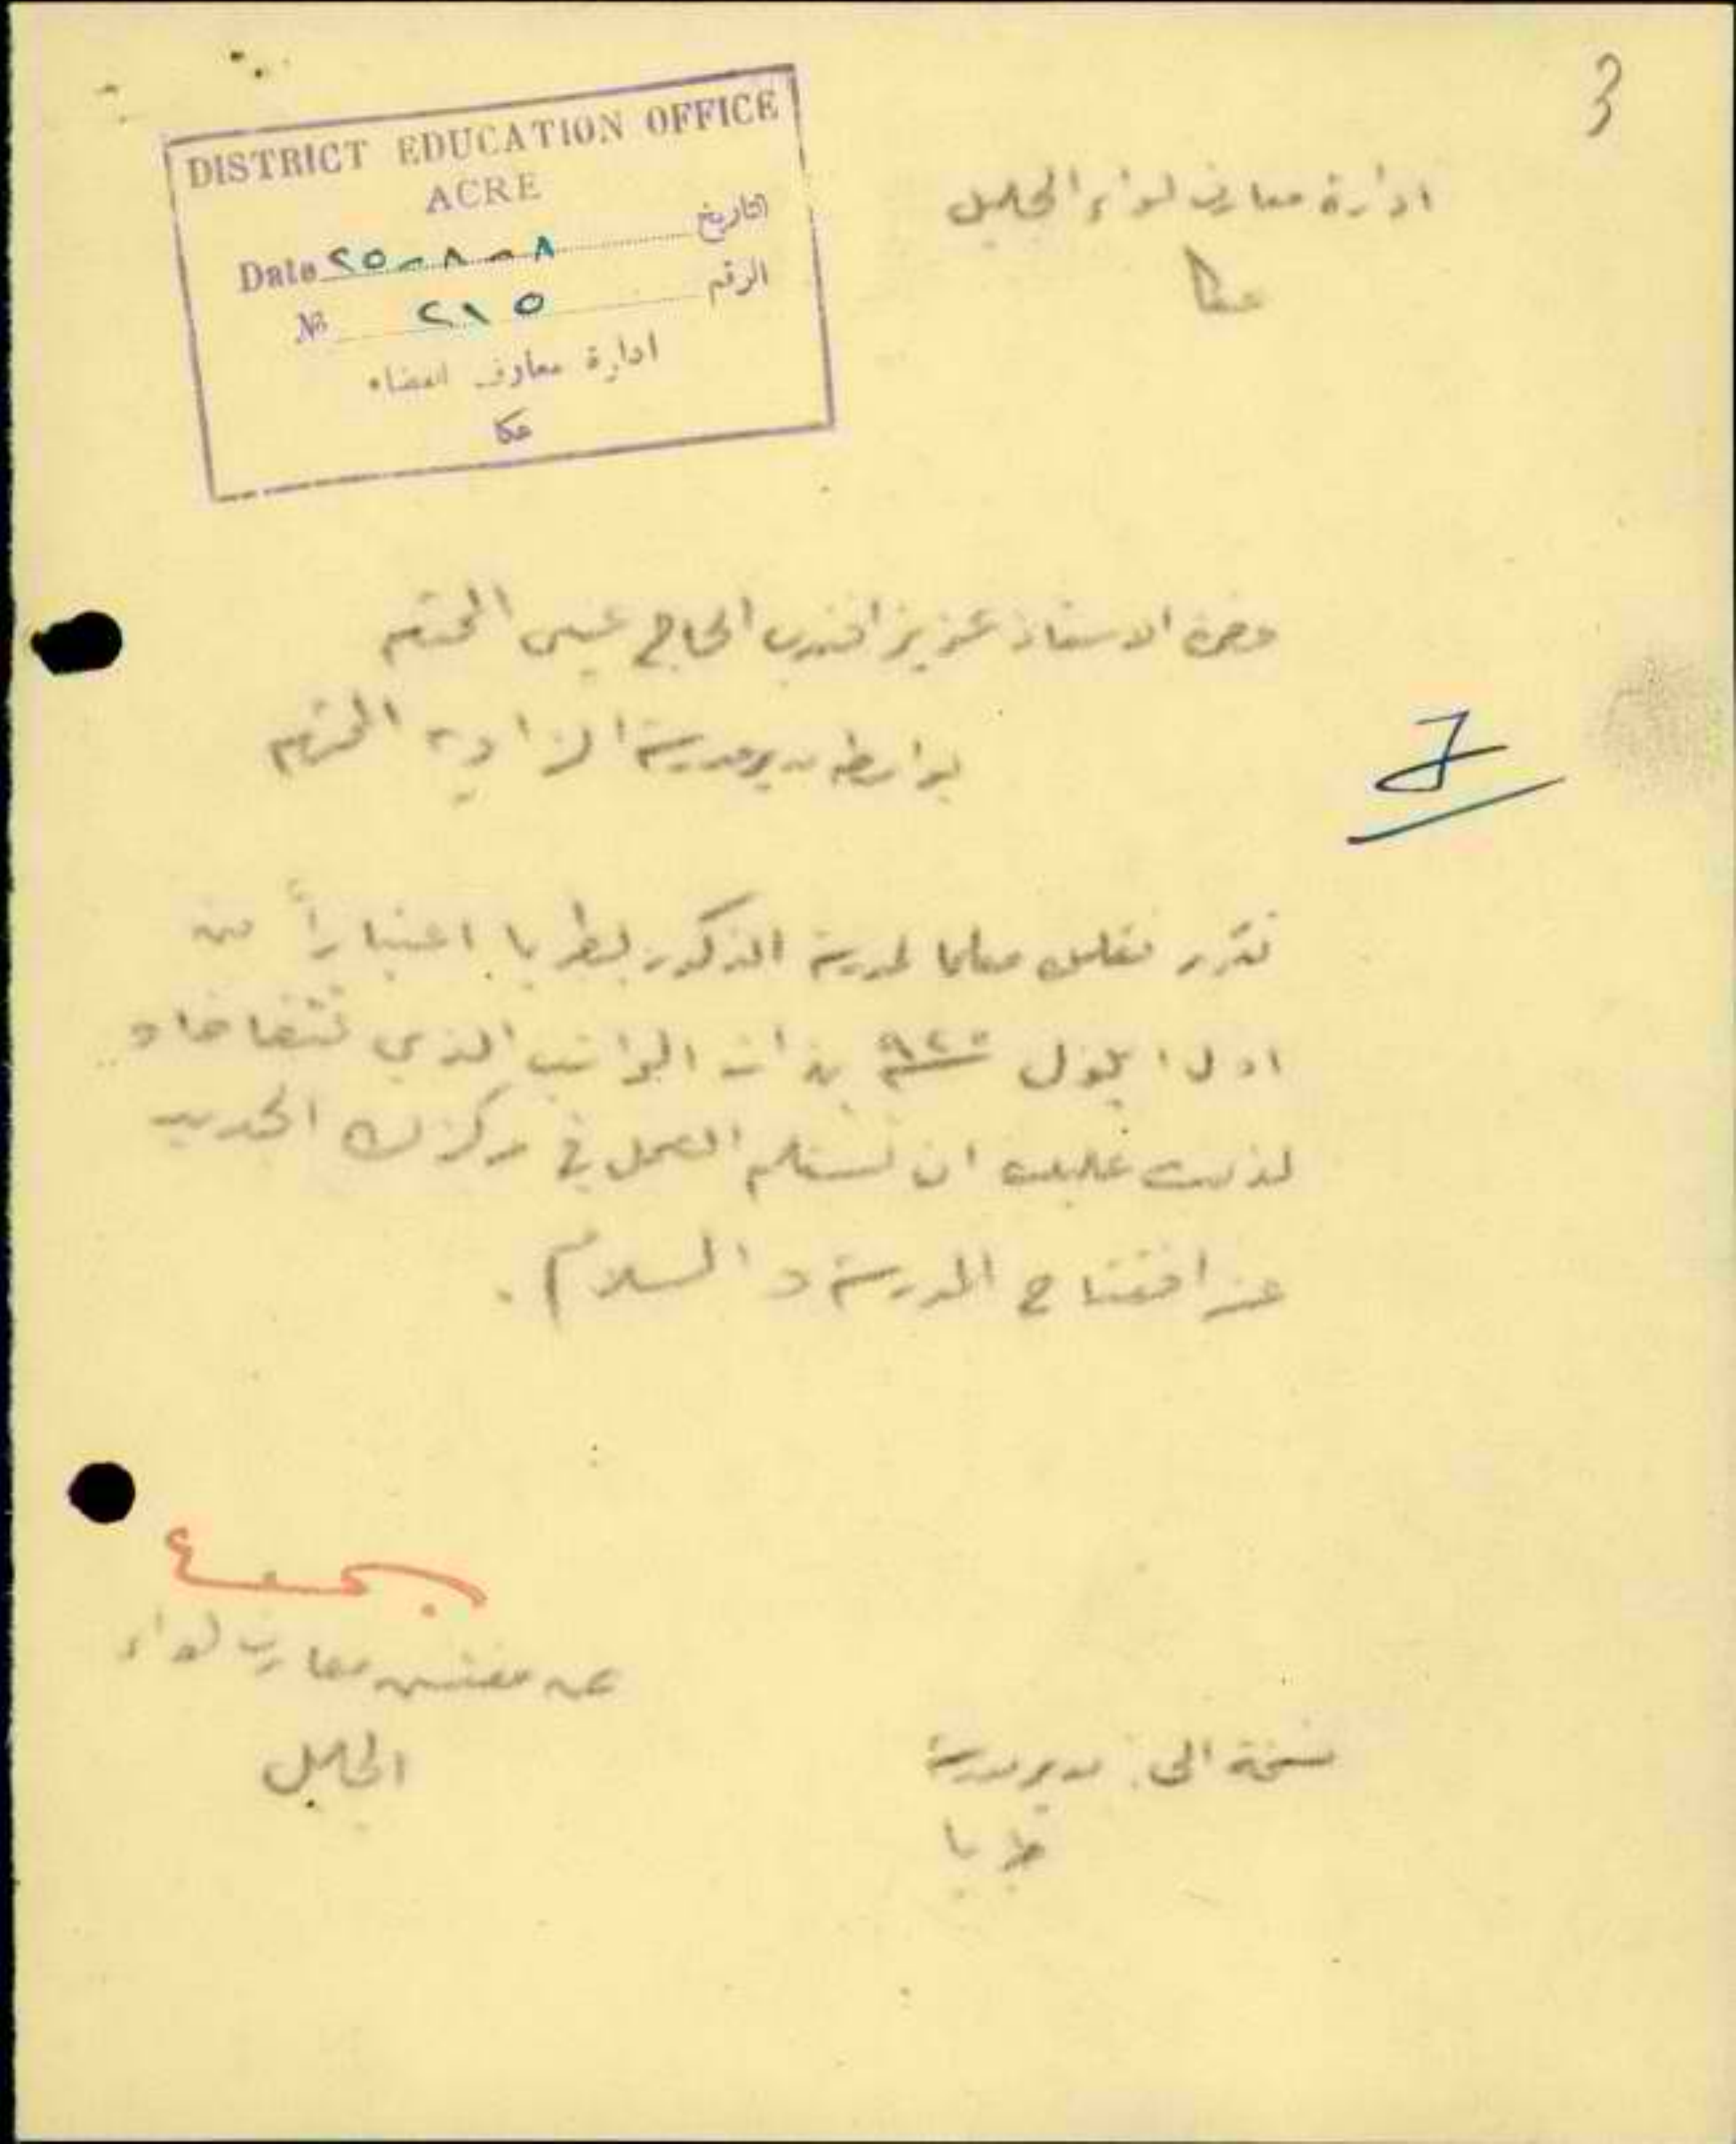 3
DISTRICT EDUCATION OFFICE
ACRE
Date ٢٥-٨-٨ التاريخ
№ ٢١٥ الرقم
ادارة معارف القضاء
عكا
ادارة معارف لواء الجليل
عكا
حضرة الاستاذ عزيز افندي الحاج عيسى المحترم
بواسطة مدير مدرسة الزاوية المحترم
تقرر نقلك معلما لمدرسة الذكور بطبريا اعتباراً من
اول ايلول ٩٢٥ بذات الراتب الذي تتقاضاه
لذلك عليك ان تستلم العمل في مركزك الجديد
عند افتتاح المدرسة والسلام .
عن مفتش معارف لواء
الجليل
نسخة الى : مدير مدرسة
طبريا